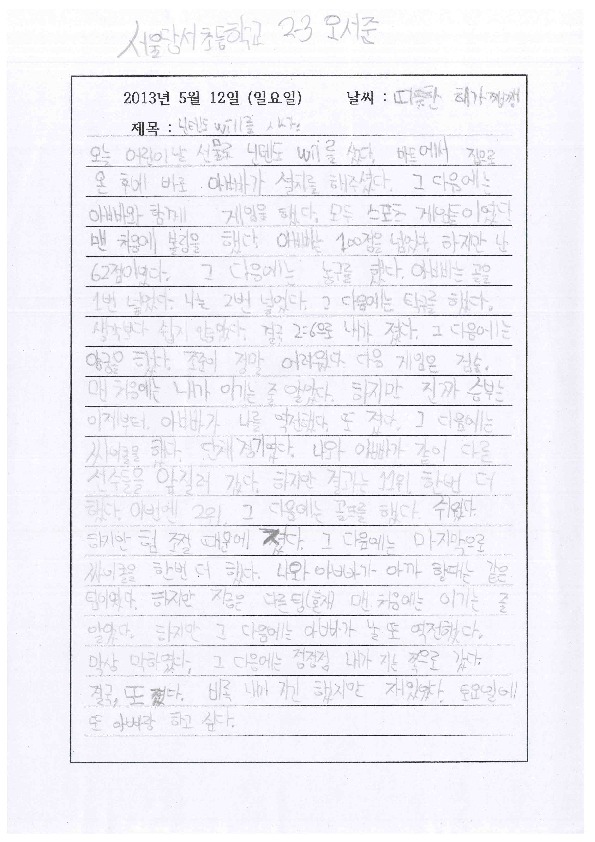 서울당서초등학교 2-3 오서준
2013년 5월 12일 (일요일) 날씨 : 따뜻한 해가 쨍쨍
제목 : 닌텐도 wii를 사다.
오늘 어린이날 선물로 닌텐도 wii를 샀다. 마트에서 집으로
온 후에 바로 아빠가 설치를 해주셨다. 그 다음에는
아빠와 함께 게임을 했다. 모두 스포츠 게임들이었다
맨 처음에 볼링을 했다. 아빠는 100점을 넘었다. 하지만 난
62점이었다. 그 다음에는 농구를 했다. 아빠는 골을
1번 넣었다. 나는 2번 넣었다. 그 다음에는 탁구를 했다.
생각보다 쉽지 않았다. 결국 2:6으로 내가 졌다. 그 다음에는
양궁을 했다. 조준이 정말 어려웠다. 다음 게임은 검술.
맨 처음에는 내가 이기는 줄 알았다. 하지만 진짜 승부는
이제부터. 아빠가 나를 역전했다. 또 졌다. 그 다음에는
싸이클을 했다. 단체 경기였다. 나와 아빠가 같이 다른
선수들을 앞질러 갔다. 하지만 결과는 11위. 한번 더
했다. 이번엔 2위. 그 다음에는 골프를 했다. 쉬웠다.
하지만 힘 조절 때문에 졌다. 그 다음에는 마지막으로
싸이클을 한번 더 했다. 나와 아빠가 아까 할때는 같은
팀이었다. 하지만 지금은 다른 팀 맨 처음에는 이기는 줄
알았다. 하지만 그 다음에는 아빠가 날 또 역전했다.
막상 막하였다. 그 다음에는 점점점 내가 지는 쪽으로 갔다.
결국, 또 졌다. 비록 내가 지긴 했지만 재밌었다. 토요일에
또 아빠랑 하고 싶다.